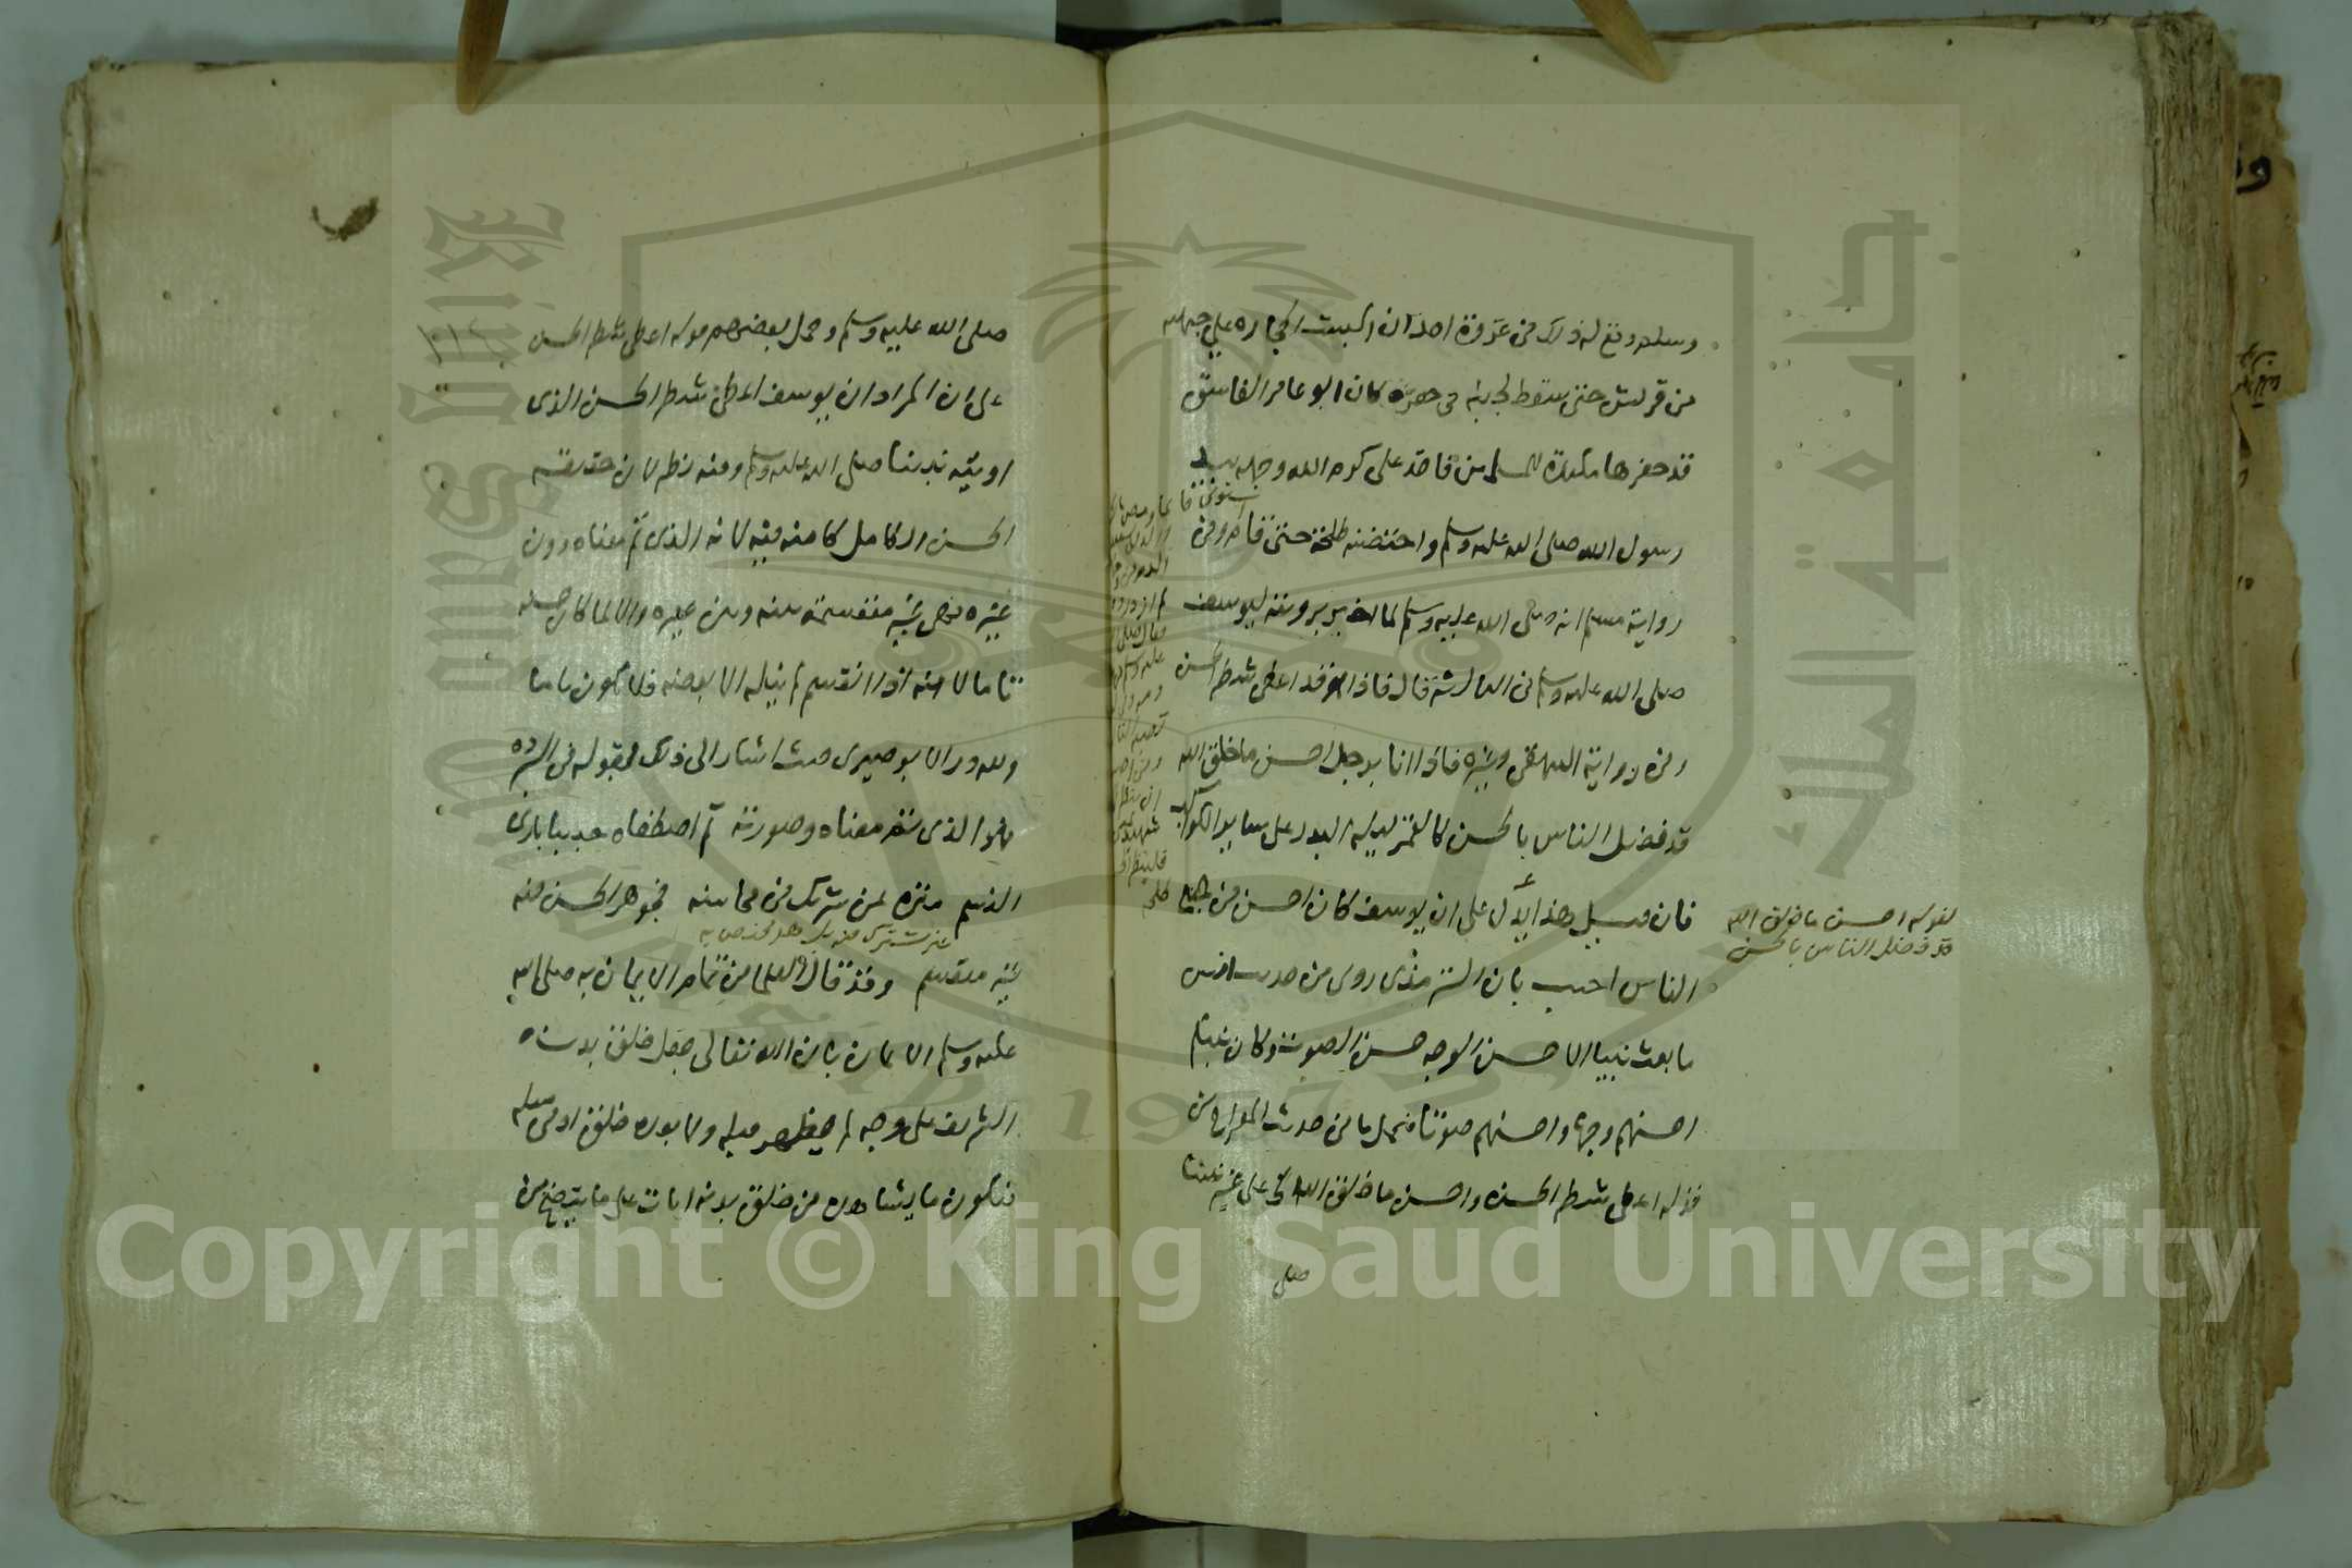 وسلم وقع له ذلك في غزوة احد ان اكبت الحجاره علي جبهته
من قريش حتى سقط لجنبه في حفرة كان ابو عامر الفاسق
قد حفرها مكيدة للمسلمين فاخذ على كرم الله وجهه بيد
رسول الله صلى الله عليه وسلم واحتضنه طلحة حتى قام وفي
رواية مسلم انه صلى الله عليه وسلم لما اخبر برويته ليوسف
صلى الله عليه وسلم في السما الثالثة قال فاذا هو قد اعطى شطر الحسن
وفي رواية البيهقي وغيره فاذا انا برجل احسن ما خلق الله
قد فضل الناس بالحسن كالقمر ليلة البدر على ساير الكواكب
فان قيل هذا يدل على ان يوسف كان احسن من جميع
الناس اجيب بان الترمذي روى من حديث انس
ما بعث نبيا الا حسن الوجه حسن الصوت وكان نبيكم
احسنهم وجها واحسنهم صوتا فيحمل ما في حديث المعراج من
قوله اعطى شطر الحسن واحسن ما خلق الله الخ على غير نبينا
صلى
لقوله احسن ما خلق الله
قد فضل الناس بالحسن
صلى الله عليه وسلم وحمل بعضهم قوله اعطى شطر الحسن
على ان المراد ان يوسف اعطى شطر الحسن الذى
اوتيه نبينا صلى الله عليه وسلم وفيه نظر لان حقيقة
الحسن الكامل كامنة فيه لانه الذى تم معناه دون
غيره فهي غير منقسمة بينه وبين غيره والا لما كان حسنه
تاما لانه اذا انقسم لم ينله الا بعضه فلا يكون تاما
ولله در الابوصيرى حيث اشار الى ذلك بقوله في البرده
فهو الذى تم معناه وصورته ثم اصطفاه حبيبا بارئ
النسم منزه عن شريك في محاسنه فجوهر الحسن فيه
غير مشترك فيه بل هو مختص به
غير منقسم وقد قال العلما من تمام الايمان به صلى الله
عليه وسلم الايمان بان الله تعالى جعل خلق بدنه
الشريف على وجه لم يظهر قبله ولا بعده خلق ادمى مثله
فيكون ما يشاهد من خلق بدنه ايات على ما يتضح من
Copyright © King Saud University
جامعة الملك
King Saud University
1957